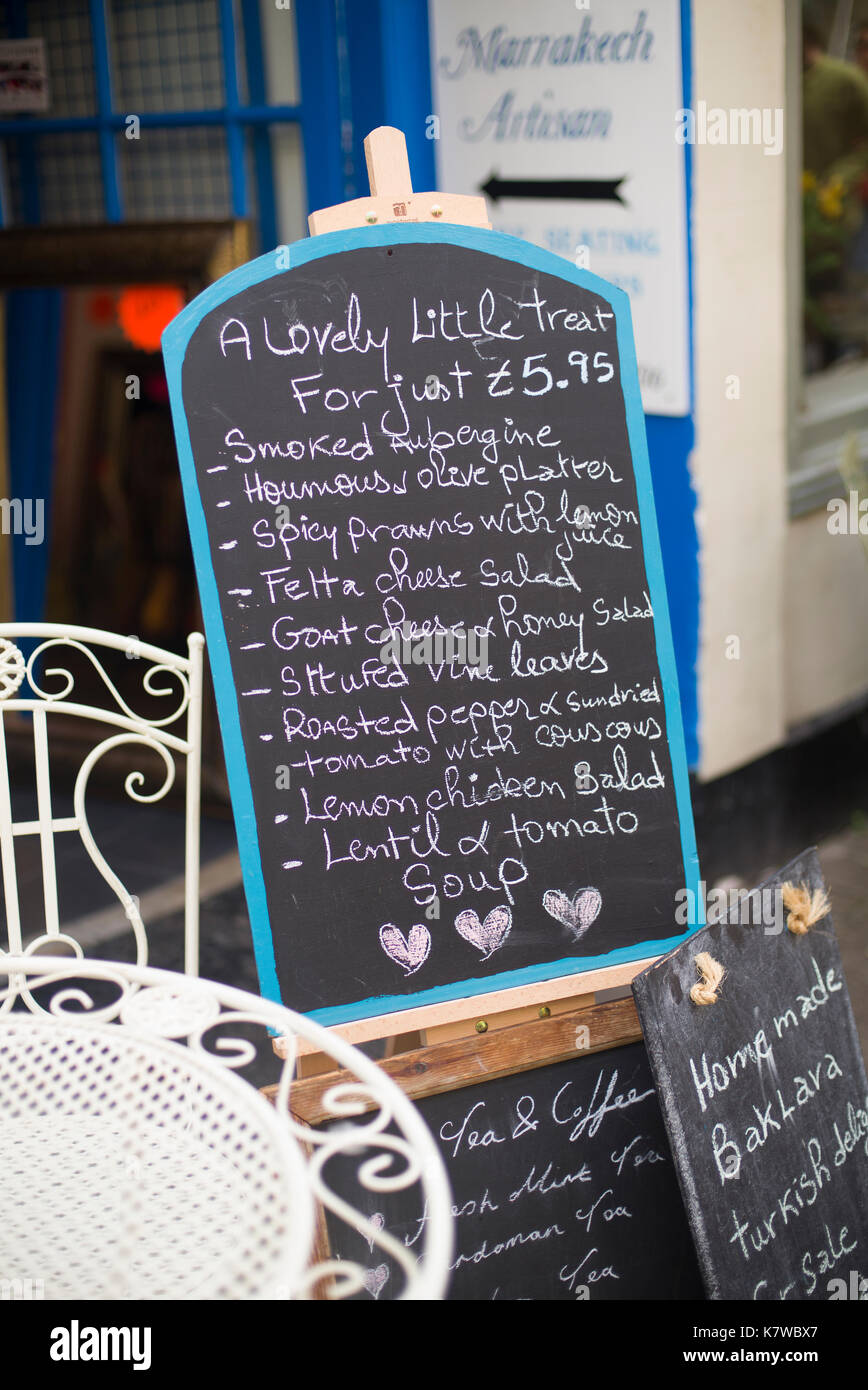 Marrakech
Artisan
SEATING
A Lovely Little treat
For just £5.95
- Smoked Aubergine
- Houmous & olive platter
- Spicy prawns with lemon
juice
- Felta cheese Salad
- Goat cheese & honey Salad
- Stufed vine leaves
- Roasted pepper & Sundried
tomato with couscous
- Lemon chicken Salad
- Lentil & tomato
Soup
Tea & Coffee
Fresh Mint Tea
Tea
Tea
Homemade
Baklava
turkish
Sale
alamy
Image ID: K7WBX7
www.alamy.com